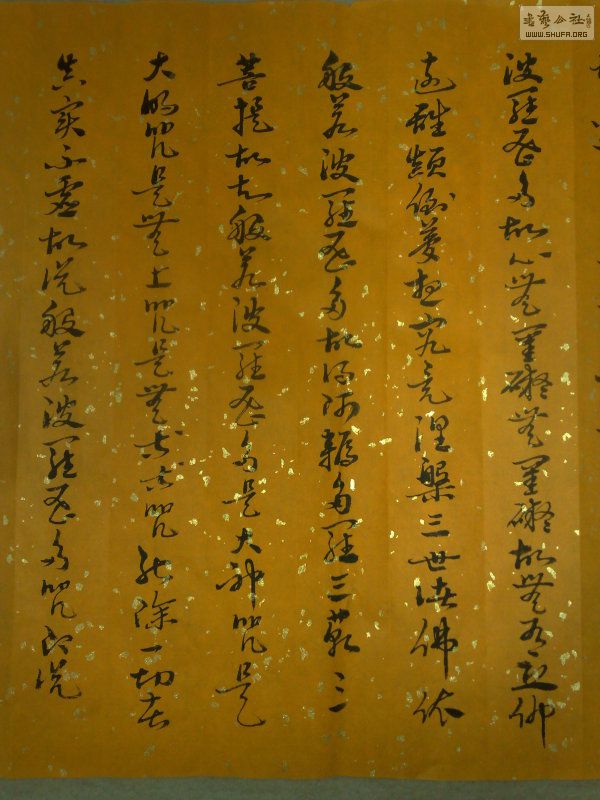 波羅蜜多故心無罣礙無罣礙故無有恐怖
遠離顛倒夢想究竟涅槃三世諸佛依
般若波羅蜜多故得阿耨多羅三藐三
菩提故知般若波羅蜜多是大神咒是
大明咒是無上咒是無等等咒能除一切苦
真實不虛故說般若波羅蜜多咒即說
書藝公社
WWW.SHUFA.ORG